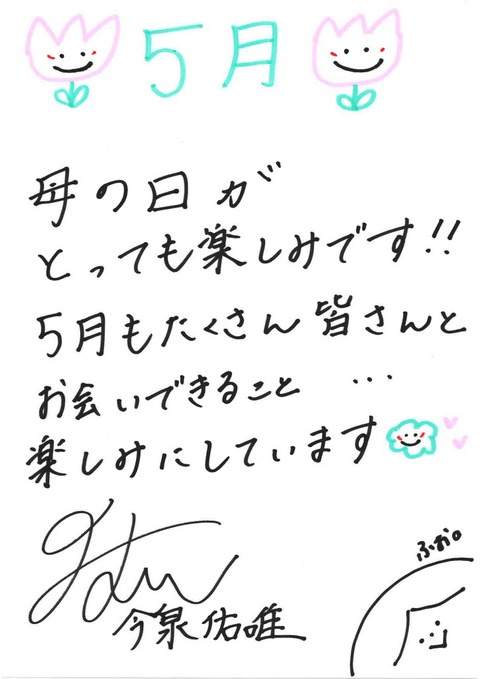 5月
母の日が
とっても楽しみです!!
5月もたくさん皆さんと
お会いできること ...
楽しみにしています
ふお。
今泉佑唯